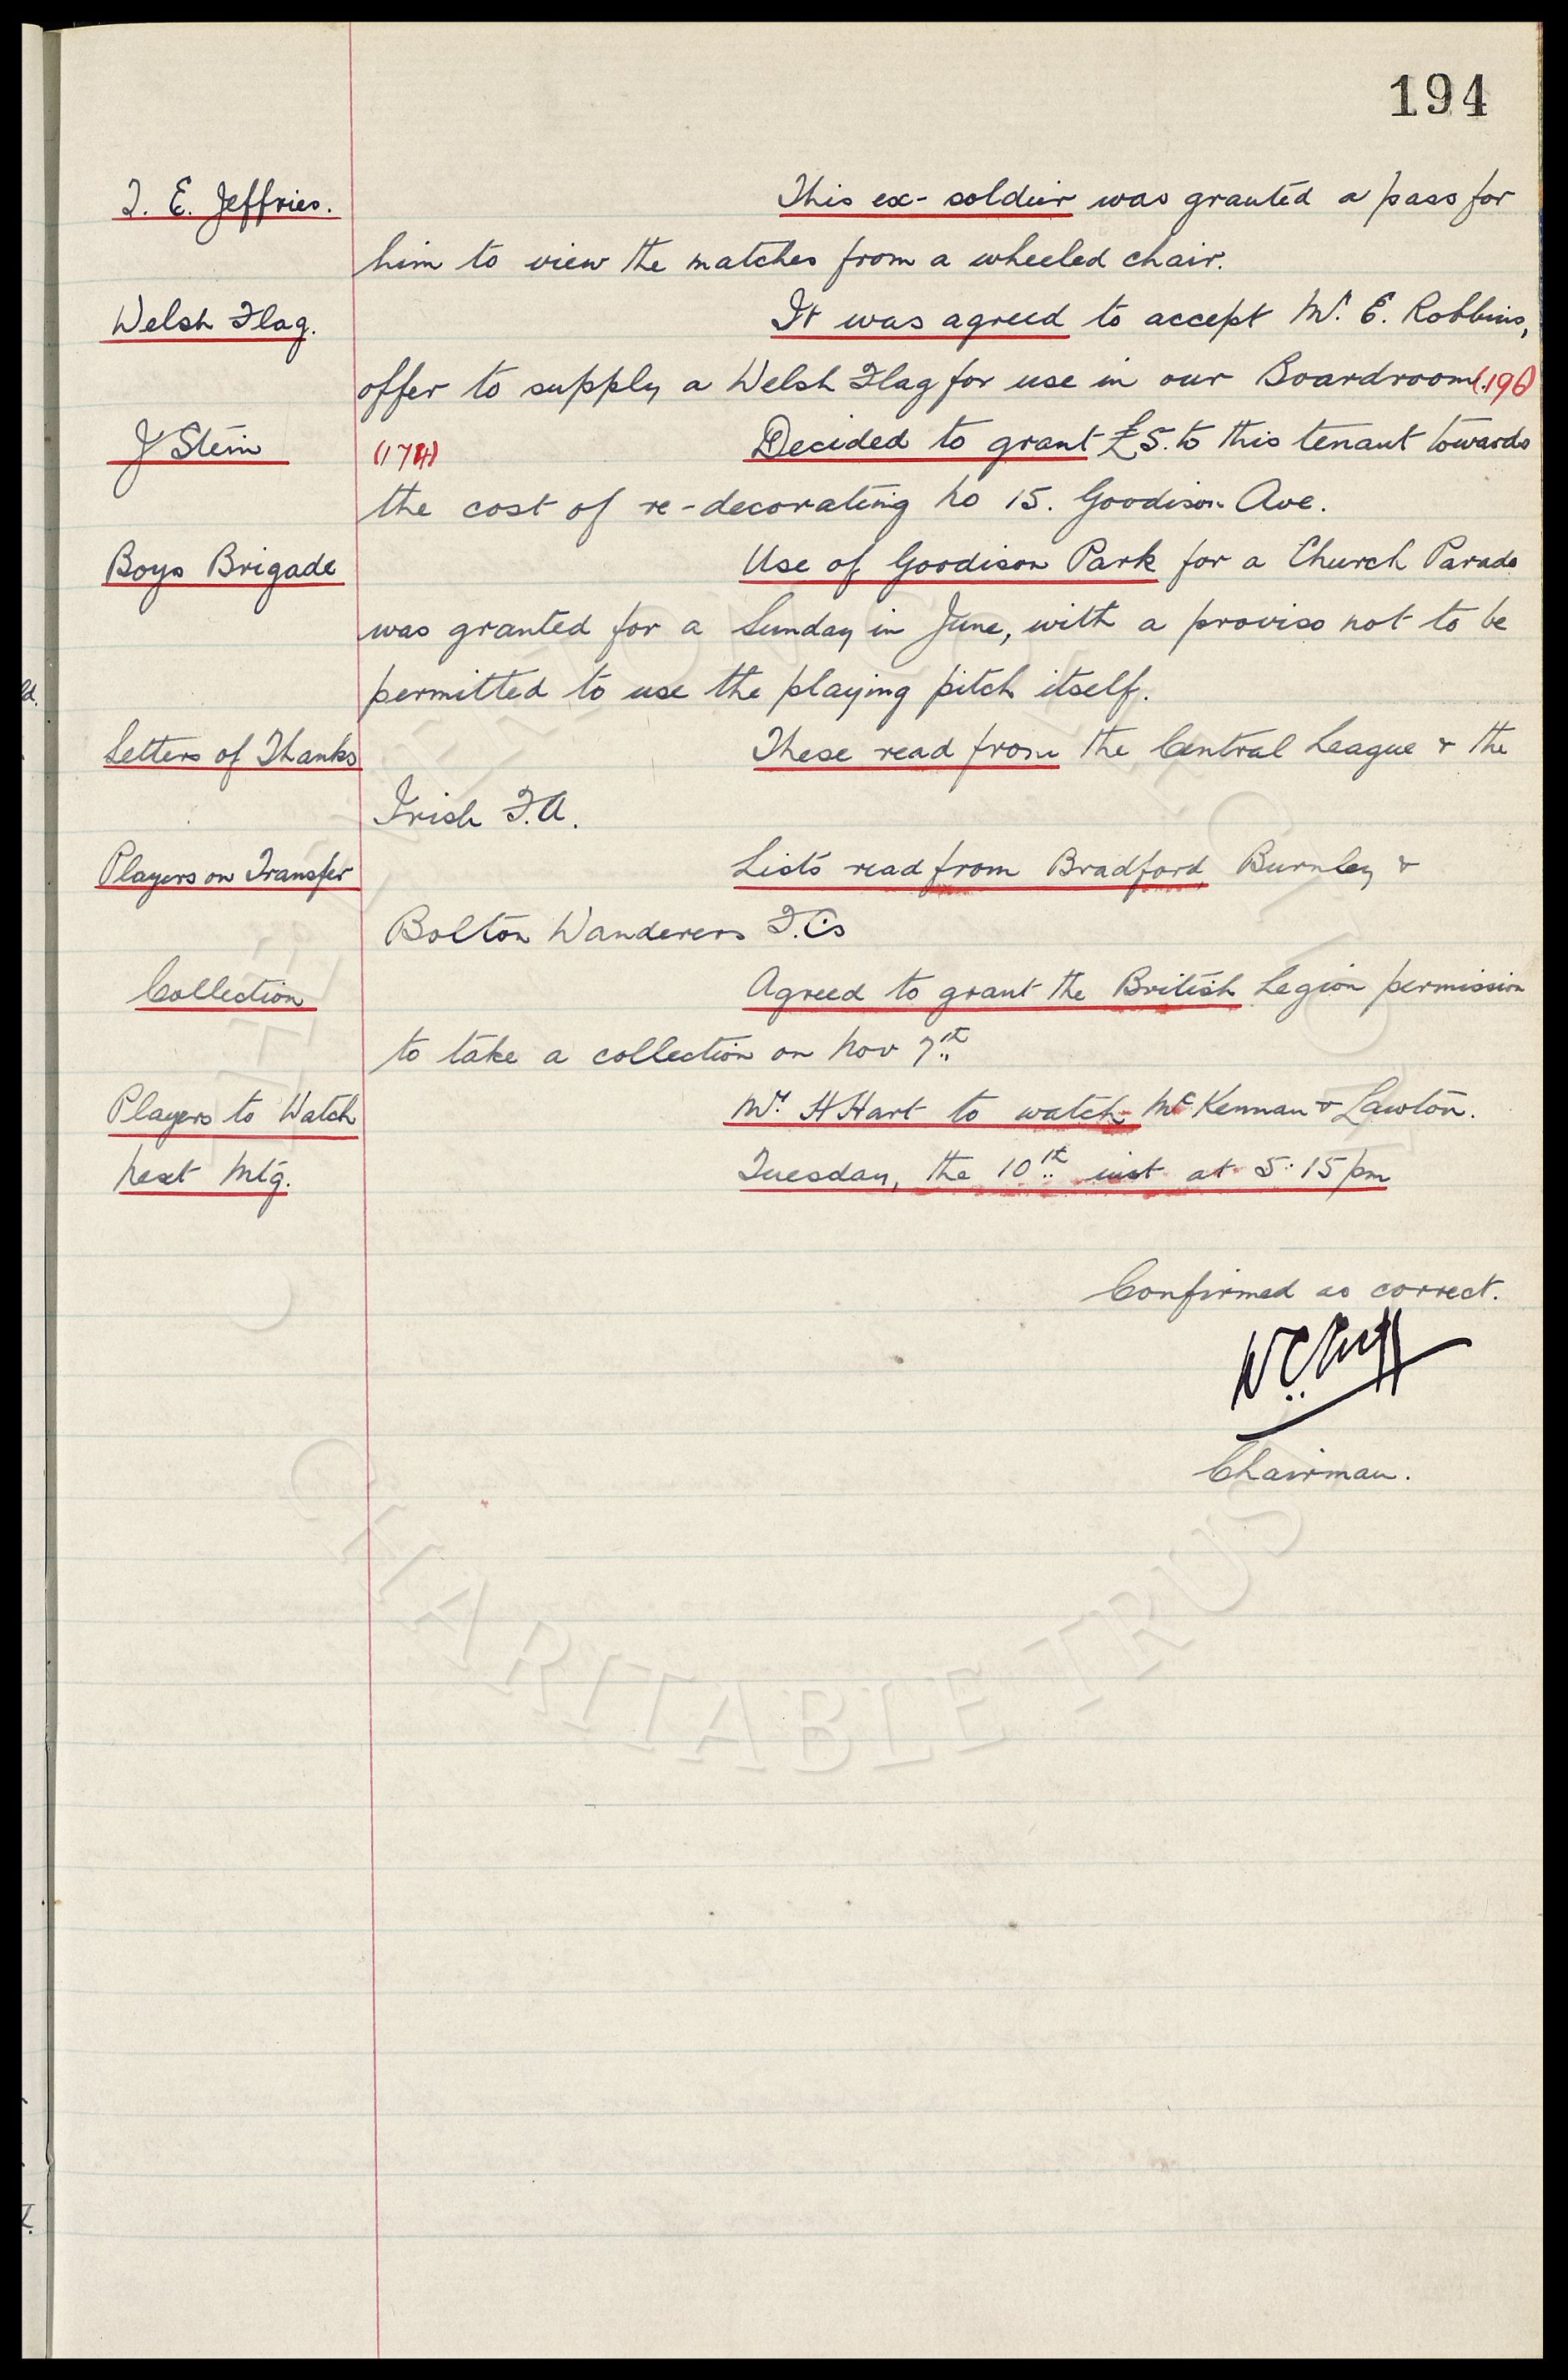 194
T. E. Jeffries. This ex-soldier was granted a pass for
him to view the matches from a wheeled chair.
Welsh Flag. It was agreed to accept Mr. E. Robbins,
offer to supply a Welsh Flag for use in our Boardroom (196)
J Stein (174) Decided to grant £5. to this tenant towards
the cost of re-decorating No 15. Goodison Ave.
Boys Brigade Use of Goodison Park for a Church Parade
was granted for a Sunday in June, with a proviso not to be
permitted to use the playing pitch itself.
Letters of Thanks These read from the Central League & the
Irish F.A.
Players on Transfer Lists read from Bradford, Burnley &
Bolton Wanderers F.Cs
Collection Agreed to grant the British Legion permission
to take a collection on Nov 7th
Players to Watch Mr. H Hart to watch McKennan & Lawton.
Next Mtg. Tuesday, the 10th inst at 5.15 pm
Confirmed as correct.
W.C. Cuff
Chairman.
CHARITABLE TRUST